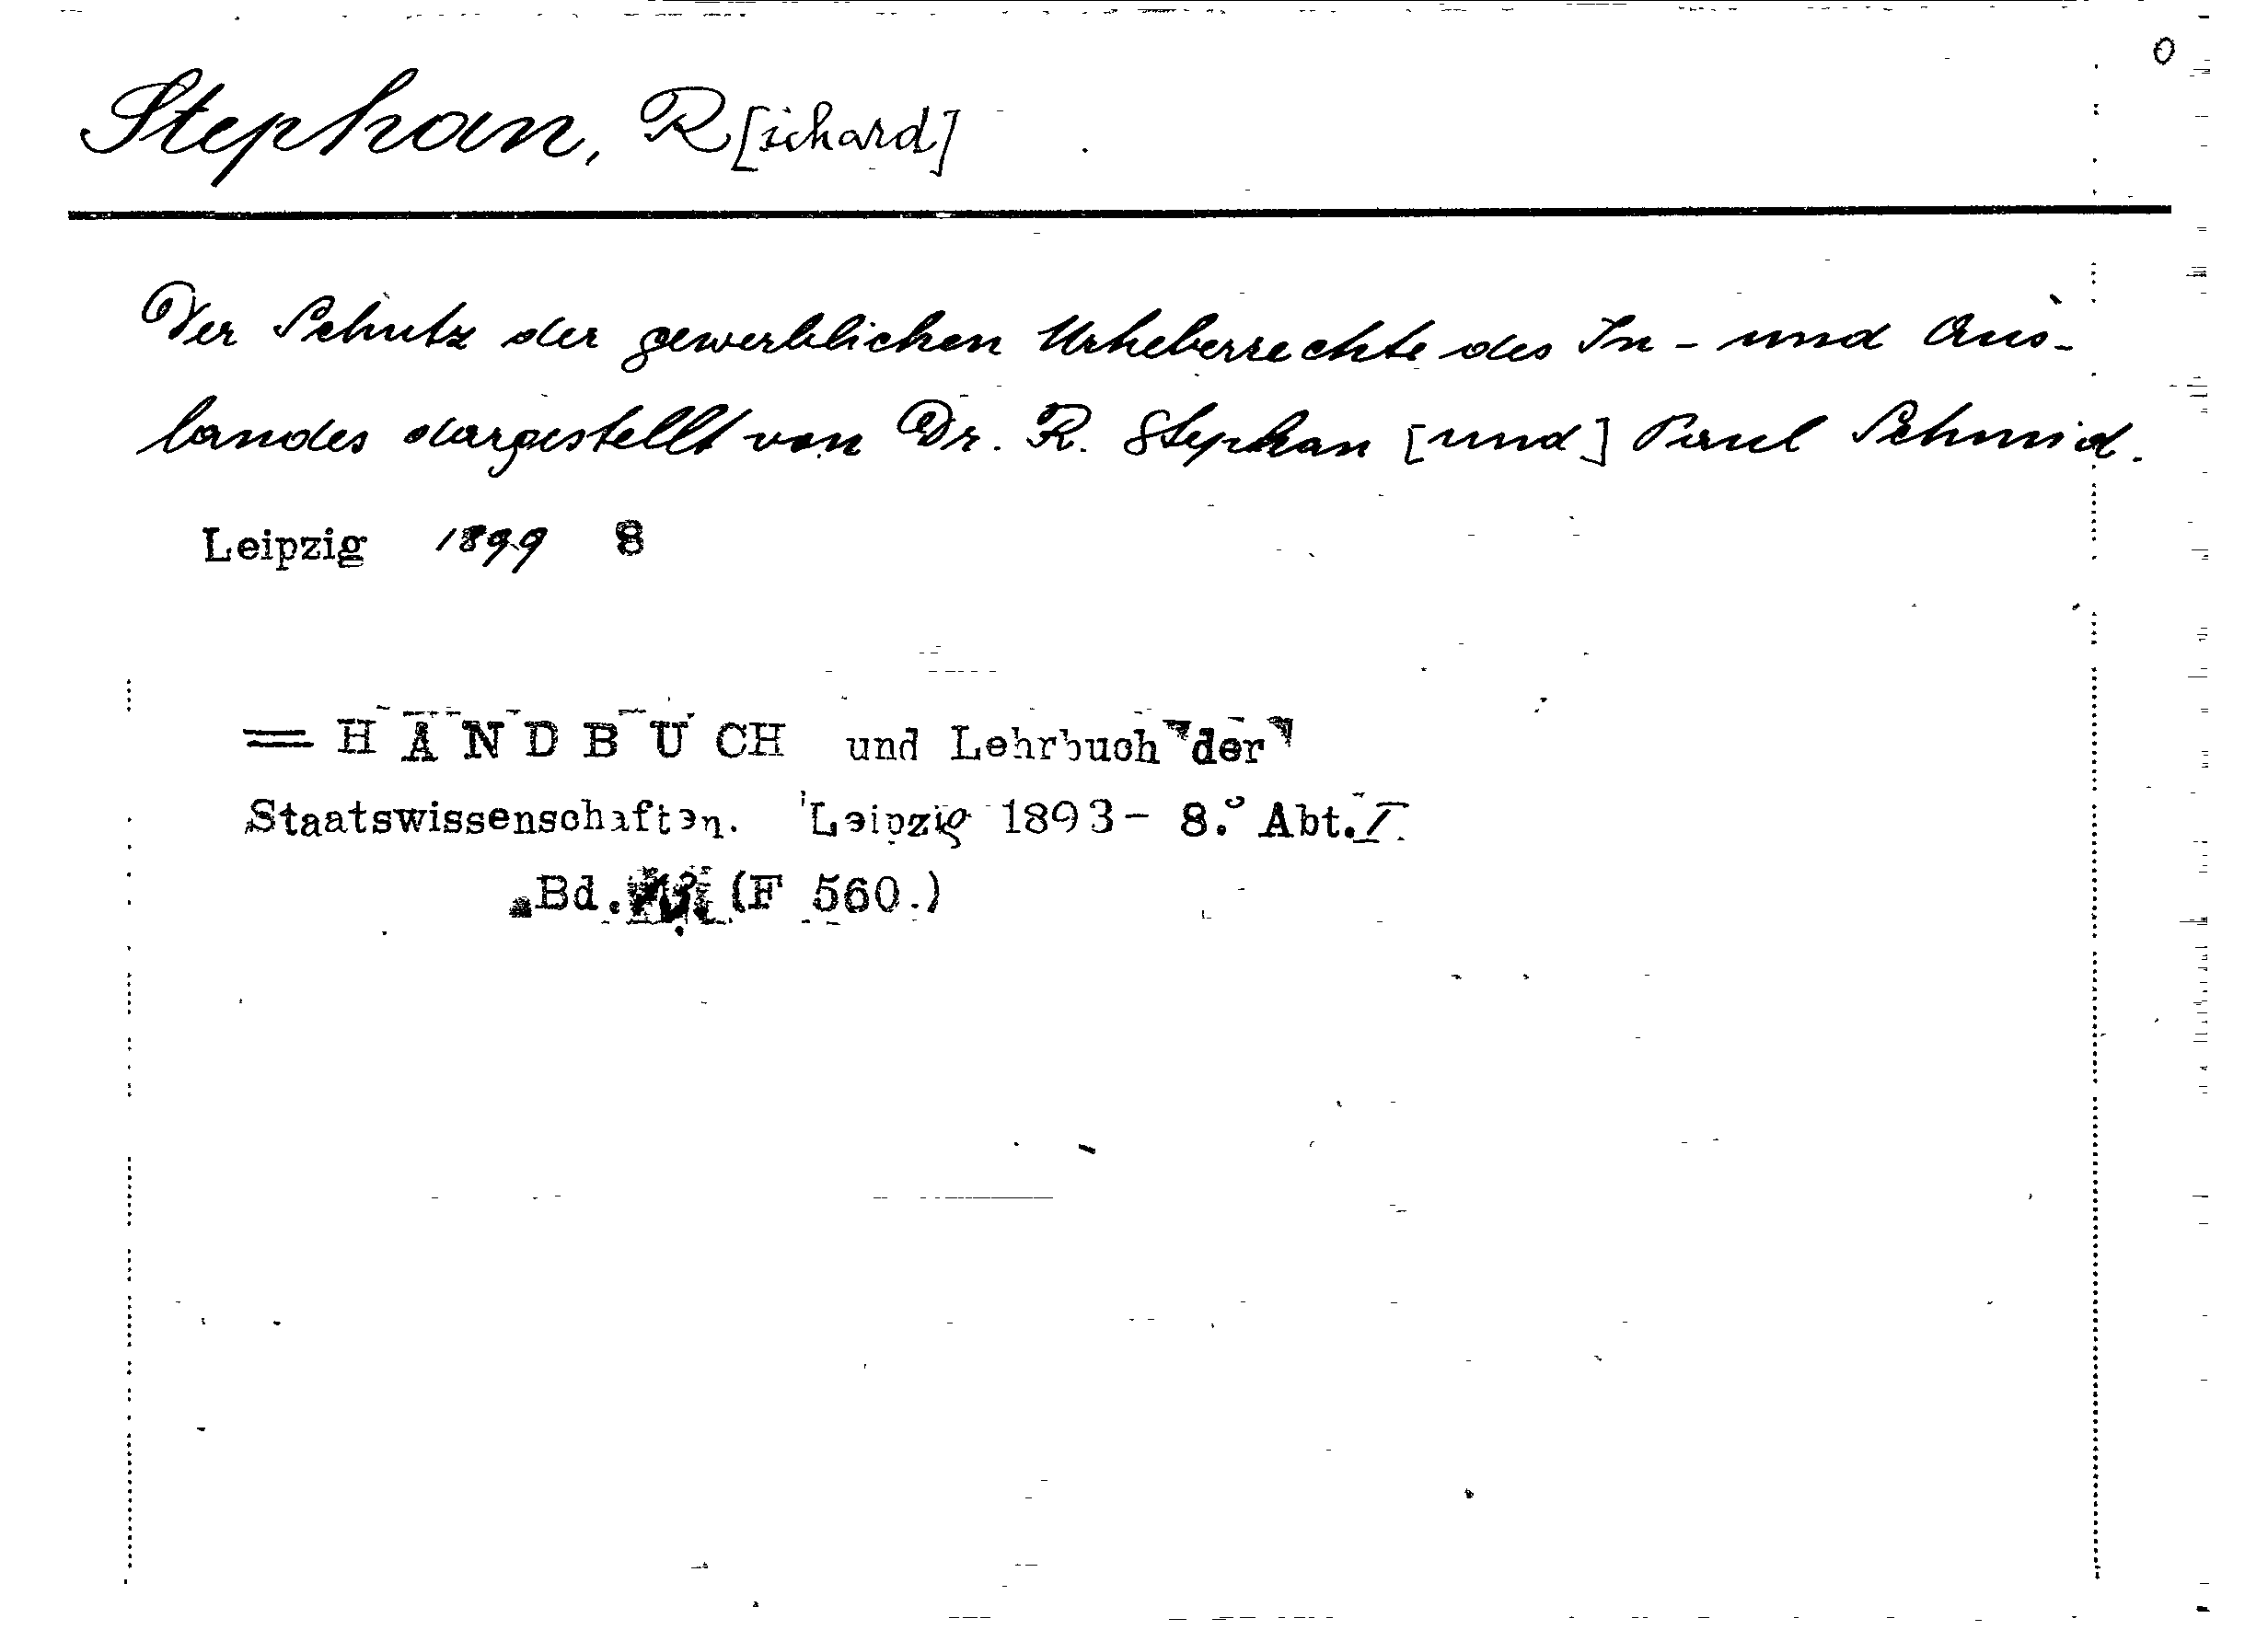 0
Stephan, R[ichard]
Der Schutz der gewerblichen Urheberrechte des In- und Aus-
landes dargestellt von Dr. R. Stephan [und] Paul Schmid.
Leipzig 1899 8
= HANDBUCH und Lehrbuch der
Staatswissenschaften. Leipzig 1893- 8.° Abt. I.
Bd. (F 560.)